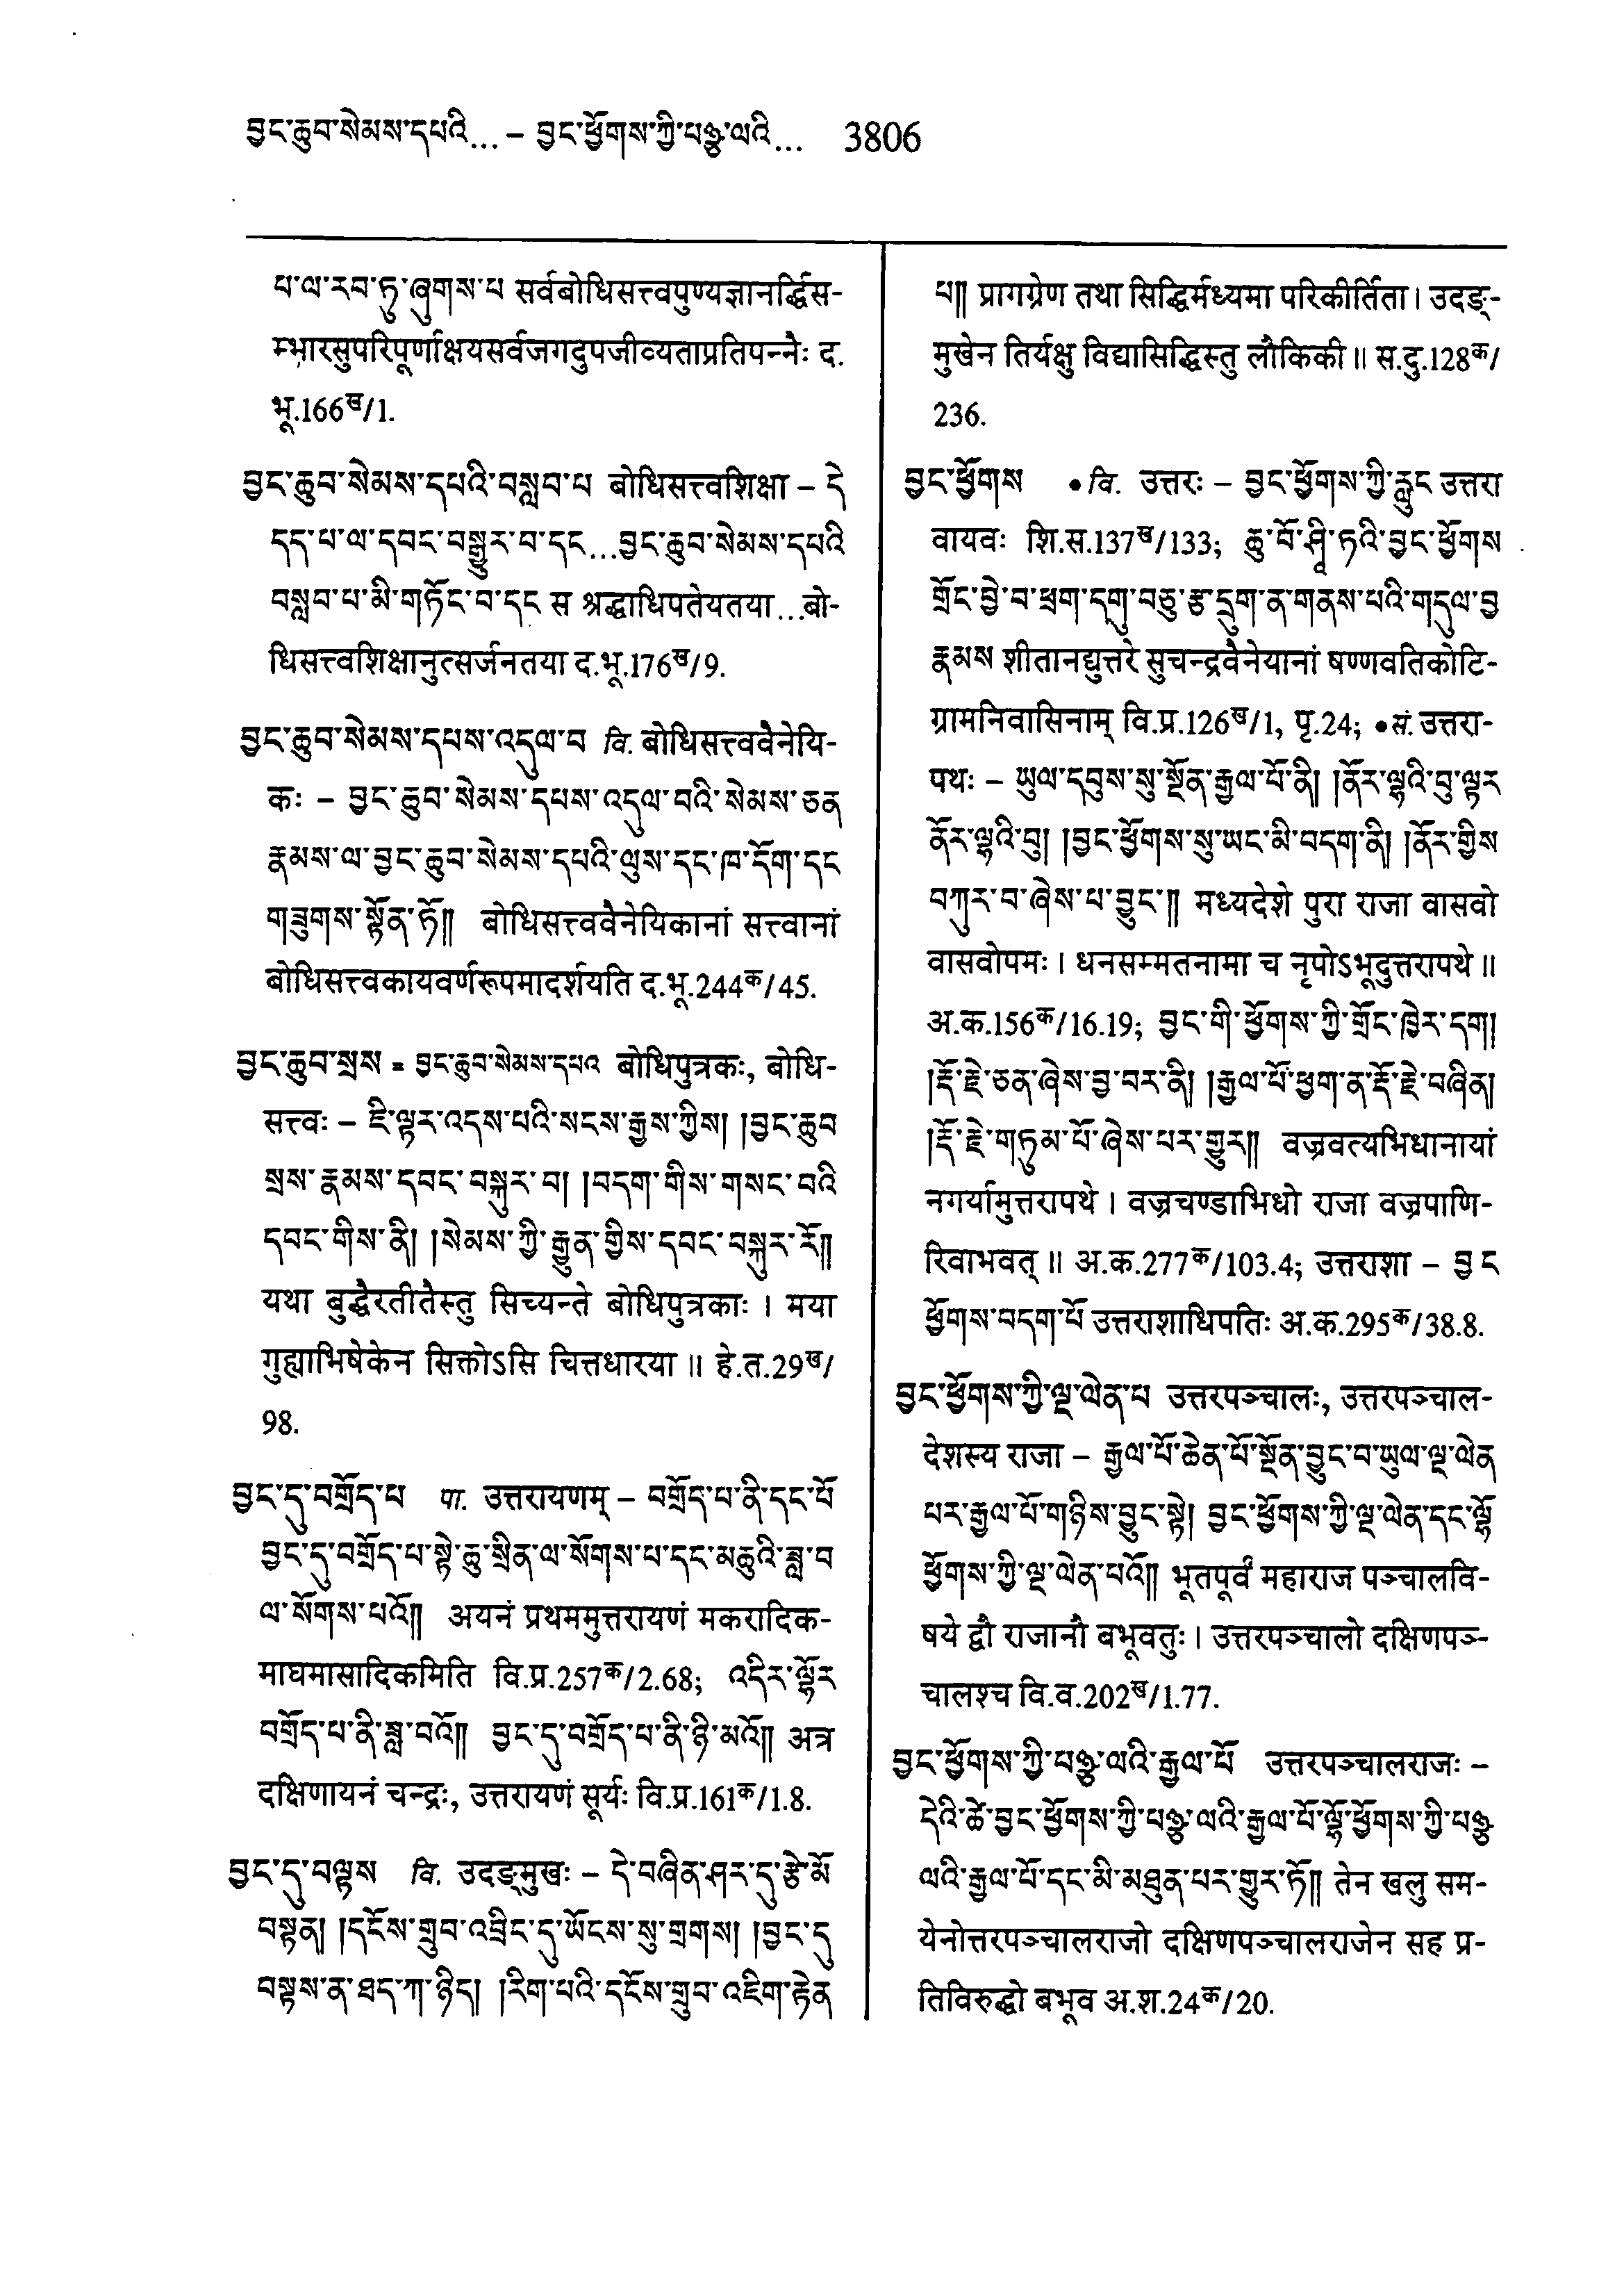 བྱང་ཆུབ་སེམས་དཔའི... – བྱང་ཕྱོགས་ཀྱི་པཉྩ་ལའི... 3806
པ་ལ་རབ་ཏུ་ཞུགས་པ सर्वबोधिसत्त्वपुण्यज्ञानर्द्धिस-
म्भारसुपरिपूर्णाक्षयसर्वजगदुपजीव्यताप्रतिपन्नैः द.
भू.166ख/1.
བྱང་ཆུབ་སེམས་དཔའི་བསླབ་པ बोधिसत्त्वशिक्षा – དེ
དད་པ་ལ་དབང་བསྒྱུར་བ་དང...བྱང་ཆུབ་སེམས་དཔའི
བསླབ་པ་མི་གཏོང་བ་དང स श्रद्धाधिपतेयतया...बो-
धिसत्त्वशिक्षानुत्सर्जनतया द.भू.176ख/9.
བྱང་ཆུབ་སེམས་དཔས་འདུལ་བ वि. बोधिसत्त्ववैनेयि-
कः – བྱང་ཆུབ་སེམས་དཔས་འདུལ་བའི་སེམས་ཅན
རྣམས་ལ་བྱང་ཆུབ་སེམས་དཔའི་ལུས་དང་ཁ་དོག་དང
གཟུགས་སྟོན་ཏོ༎ बोधिसत्त्ववैनेयिकानां सत्त्वानां
बोधिसत्त्वकायवर्णरूपमादर्शयति द.भू.244क/45.
བྱང་ཆུབ་སྲས = བྱང་ཆུབ་སེམས་དཔའ बोधिपुत्रकः, बोधि-
सत्त्वः – ཇི་ལྟར་འདས་པའི་སངས་རྒྱས་ཀྱིས། །བྱང་ཆུབ
སྲས་རྣམས་དབང་བསྐུར་བ། །བདག་གིས་གསང་བའི
དབང་གིས་ནི། །སེམས་ཀྱི་རྒྱུན་གྱིས་དབང་བསྐུར་རོ༎
यथा बुद्धैरतीतैस्तु सिच्यन्ते बोधिपुत्रकाः । मया
गुह्याभिषेकेन सिक्तोऽसि चित्तधारया ॥ हे.त.29ख/
98.
བྱང་དུ་བགྲོད་པ पा. उत्तरायणम् – བགྲོད་པ་ནི་དང་པོ
བྱང་དུ་བགྲོད་པ་སྟེ་ཆུ་སྲིན་ལ་སོགས་པ་དང་མཆུའི་ཟླ་བ
ལ་སོགས་པའོ༎ अयनं प्रथममुत्तरायणं मकरादिक-
माघमासादिकमिति वि.प्र.257क/2.68; འདིར་ལྷོར
བགྲོད་པ་ནི་ཟླ་བའོ༎ བྱང་དུ་བགྲོད་པ་ནི་ཉི་མའོ༎ अत्र
दक्षिणायनं चन्द्रः, उत्तरायणं सूर्यः वि.प्र.161क/1.8.
བྱང་དུ་བལྟས वि. उदङ्मुखः – དེ་བཞིན་ཤར་དུ་རྩེ་མོ
བསྟན། །དངོས་གྲུབ་འབྲིང་དུ་ཡོངས་སུ་གྲགས། །བྱང་དུ
བསྟས་ན་ཐད་ཀ་ཉིད། །རིག་པའི་དངོས་གྲུབ་འཇིག་རྟེན
པ༎ प्रागग्रेण तथा सिद्धिर्मध्यमा परिकीर्तिता । उदङ्-
मुखेन तिर्यक्षु विद्यासिद्धिस्तु लौकिकी ॥ स.दु.128क/
236.
བྱང་ཕྱོགས • वि. उत्तरः – བྱང་ཕྱོགས་ཀྱི་རླུང उत्तरा
वायवः शि.स.137ख/133; ཆུ་བོ་ཤཱི་ཏའི་བྱང་ཕྱོགས
གྲོང་བྱེ་བ་ཕྲག་དགུ་བཅུ་རྩ་དྲུག་ན་གནས་པའི་གདུལ་བྱ
རྣམས शीतानद्युत्तरे सुचन्द्रवैनेयानां षण्णवतिकोटि-
ग्रामनिवासिनाम् वि.प्र.126ख/1, पृ.24; • सं. उत्तरा-
पथः – ཡུལ་དབུས་སུ་སྔོན་རྒྱལ་པོ་ནི། །ནོར་ལྷའི་བུ་ལྟར
ནོར་ལྷའི་བུ། །བྱང་ཕྱོགས་སུ་ཡང་མི་བདག་ནི། །ནོར་གྱིས
བཀུར་བ་ཞེས་པ་བྱུང་༎ मध्यदेशे पुरा राजा वासवो
वासवोपमः । धनसम्मतनामा च नृपोऽभूदुत्तरापथे ॥
अ.क.156क/16.19; བྱང་གི་ཕྱོགས་ཀྱི་གྲོང་ཁྱེར་དག།
།རྡོ་རྗེ་ཅན་ཞེས་བྱ་བར་ནི། །རྒྱལ་པོ་ཕྱག་ན་རྡོ་རྗེ་བཞིན།
།རྡོ་རྗེ་གཏུམ་པོ་ཞེས་པར་གྱུར༎ वज्रवत्यभिधानायां
नगर्यामुत्तरापथे । वज्रचण्डाभिधो राजा वज्रपाणि-
रिवाभवत् ॥ अ.क.277क/103.4; उत्तराशा – བྱང
ཕྱོགས་བདག་པོ उत्तराशाधिपतिः अ.क.295क/38.8.
བྱང་ཕྱོགས་ཀྱི་ལྔ་ལེན་པ उत्तरपञ्चालः, उत्तरपञ्चाल-
देशस्य राजा – རྒྱལ་པོ་ཆེན་པོ་སྔོན་བྱུང་བ་ཡུལ་ལྔ་ལེན
པར་རྒྱལ་པོ་གཉིས་བྱུང་སྟེ། བྱང་ཕྱོགས་ཀྱི་ལྔ་ལེན་དང་ལྷོ
ཕྱོགས་ཀྱི་ལྔ་ལེན་པའོ༎ भूतपूर्वं महाराज पञ्चालवि-
षये द्वौ राजानौ बभूवतुः । उत्तरपञ्चालो दक्षिणपञ्-
चालश्च वि.व.202ख/1.77.
བྱང་ཕྱོགས་ཀྱི་པཉྩ་ལའི་རྒྱལ་པོ उत्तरपञ्चालराजः –
དེའི་ཚེ་བྱང་ཕྱོགས་ཀྱི་པཉྩ་ལའི་རྒྱལ་པོ་ལྷོ་ཕྱོགས་ཀྱི་པཉྩ
ལའི་རྒྱལ་པོ་དང་མི་མཐུན་པར་གྱུར་ཏོ༎ तेन खलु सम-
येनोत्तरपञ्चालराजो दक्षिणपञ्चालराजेन सह प्र-
तिविरुद्धो बभूव अ.श.24क/20.